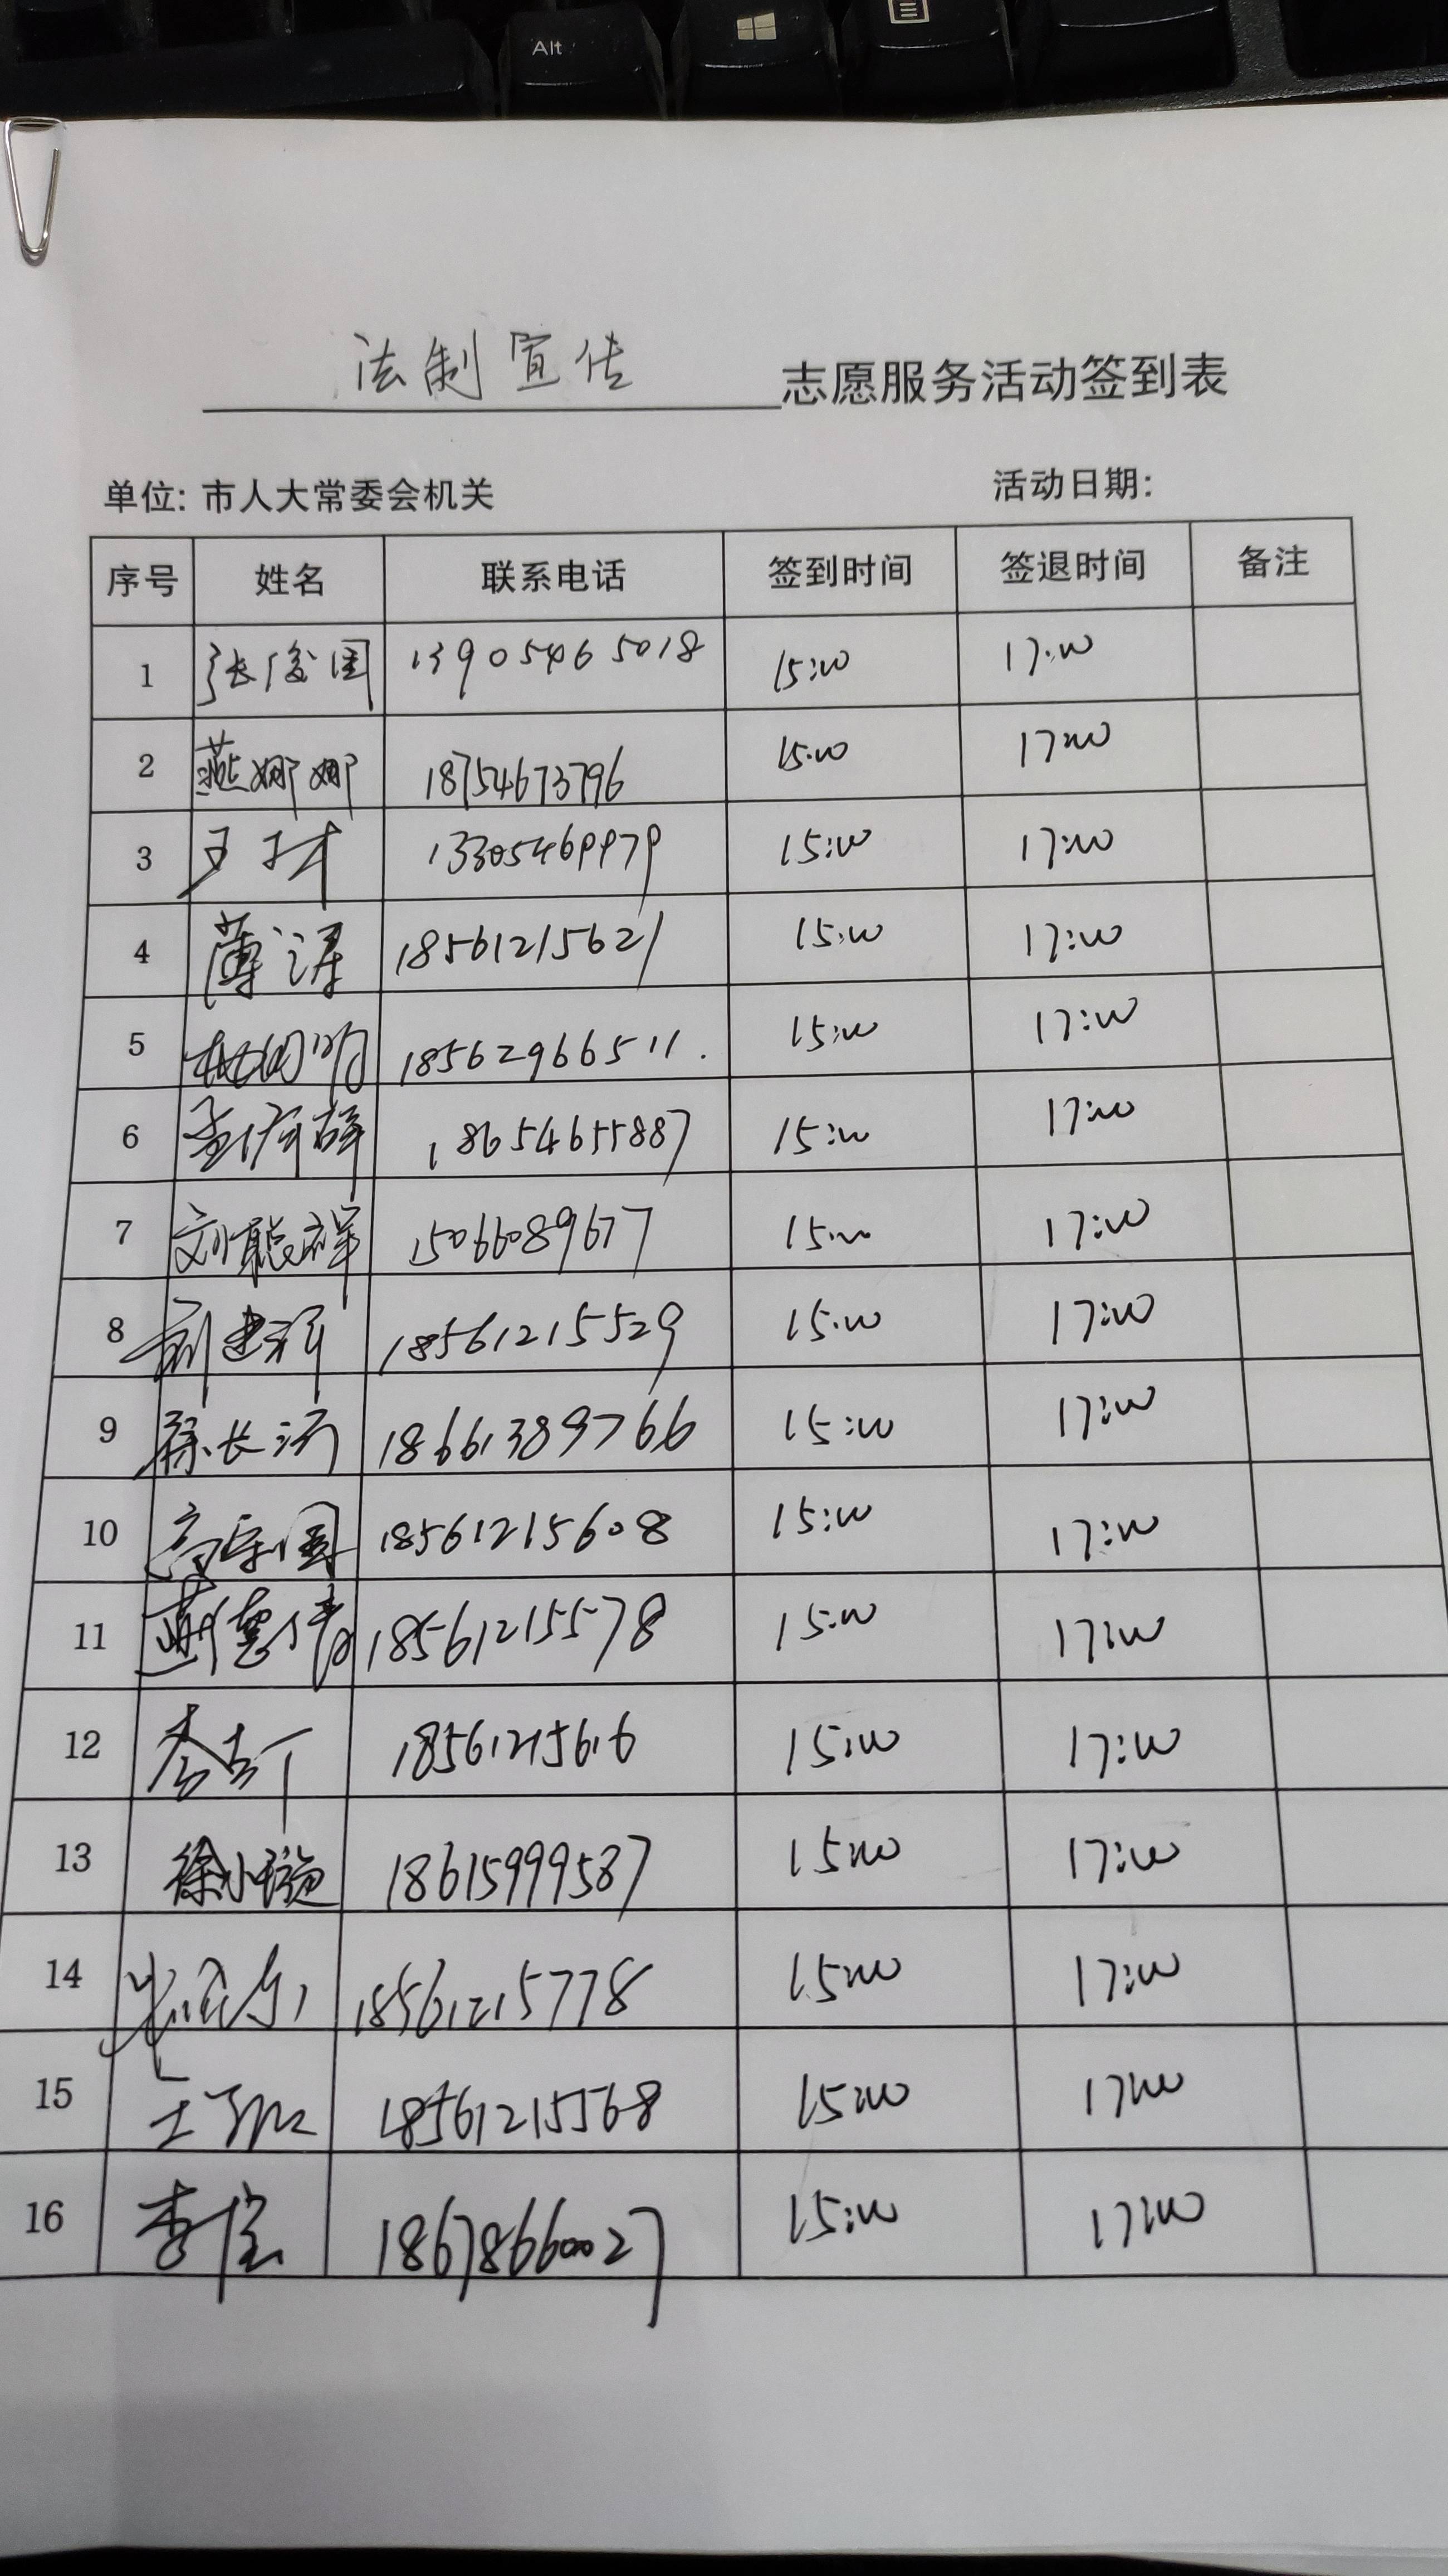 Alt
法制宣传 志愿服务活动签到表
单位: 市人大常委会机关 活动日期:
序号 姓名 联系电话 签到时间 签退时间 备注
1 张俊国 13905465018 15:00 17:00
2 燕娜娜 18754673796 15:00 17:00
3 13305469979 15:00 17:00
4 薄涛 18561215621 15:00 17:00
5 18562966511. 15:00 17:00
6 18654655887 15:00 17:00
7 刘聪祥 15066089677 15:00 17:00
8 18561215529 15:00 17:00
9 徐长河 18661389766 15:00 17:00
10 高宗国 18561215608 15:00 17:00
11 18561215578 15:00 17:00
12 18561215616 15:00 17:00
13 徐小璇 18615999587 15:00 17:00
14 18561215778 15:00 17:00
15 18561215568 15:00 17:00
16 李信 15:00 17:00